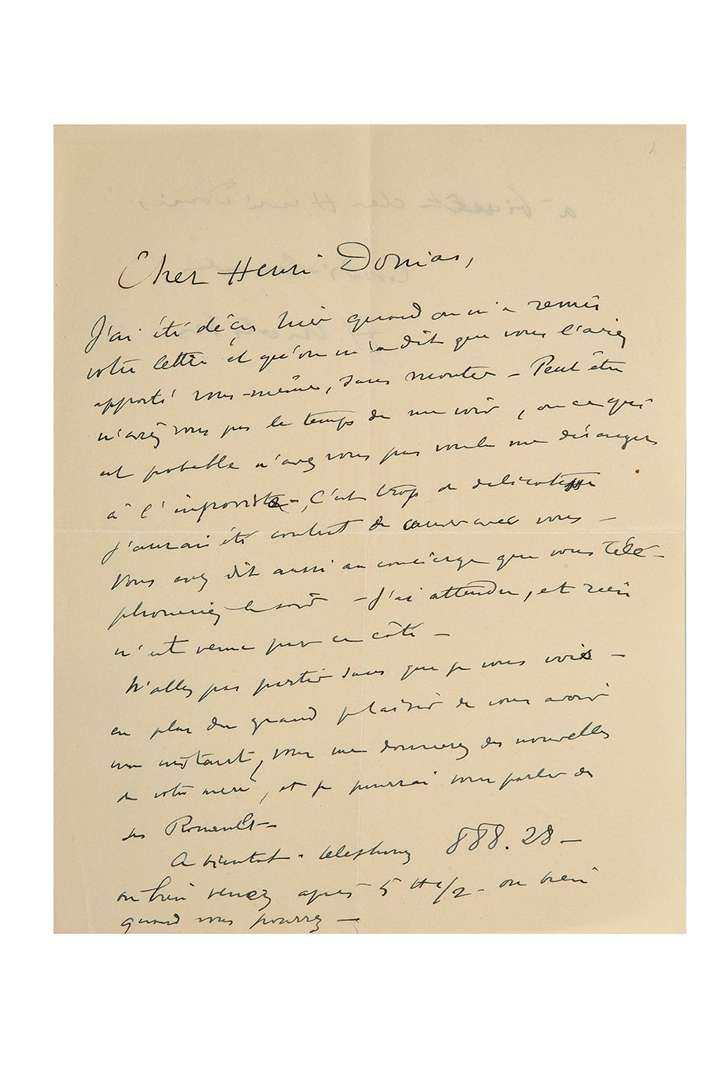 Cher Henri Donias,
J'ai été déçu hier quand on m'a remis
votre lettre et qu'on m'a dit que vous l'aviez
apporté vous-même, sans monter - Peut être
n'avez vous pas le temps de me voir, ou ce qui
est probable n'avez vous pas voulu me déranger
à l'improviste -, C'est trop de délicatesse
J'aurais été content de causer avec vous -
Vous avez dit aussi au concierge que vous télé-
phoneriez le soir - J'ai attendu, et rien
n'est venu par ce côté -
N'allez pas partir sans que je vous vois -
en plus du grand plaisir de vous avoir
un instant, vous me donnerez des nouvelles
de votre mère, et je pourrai vous parler de
ses Renault -
A bientôt - téléphonez 888.28 -
ou bien venez après 5 H 1/2 - ou bien
quand vous pourrez -